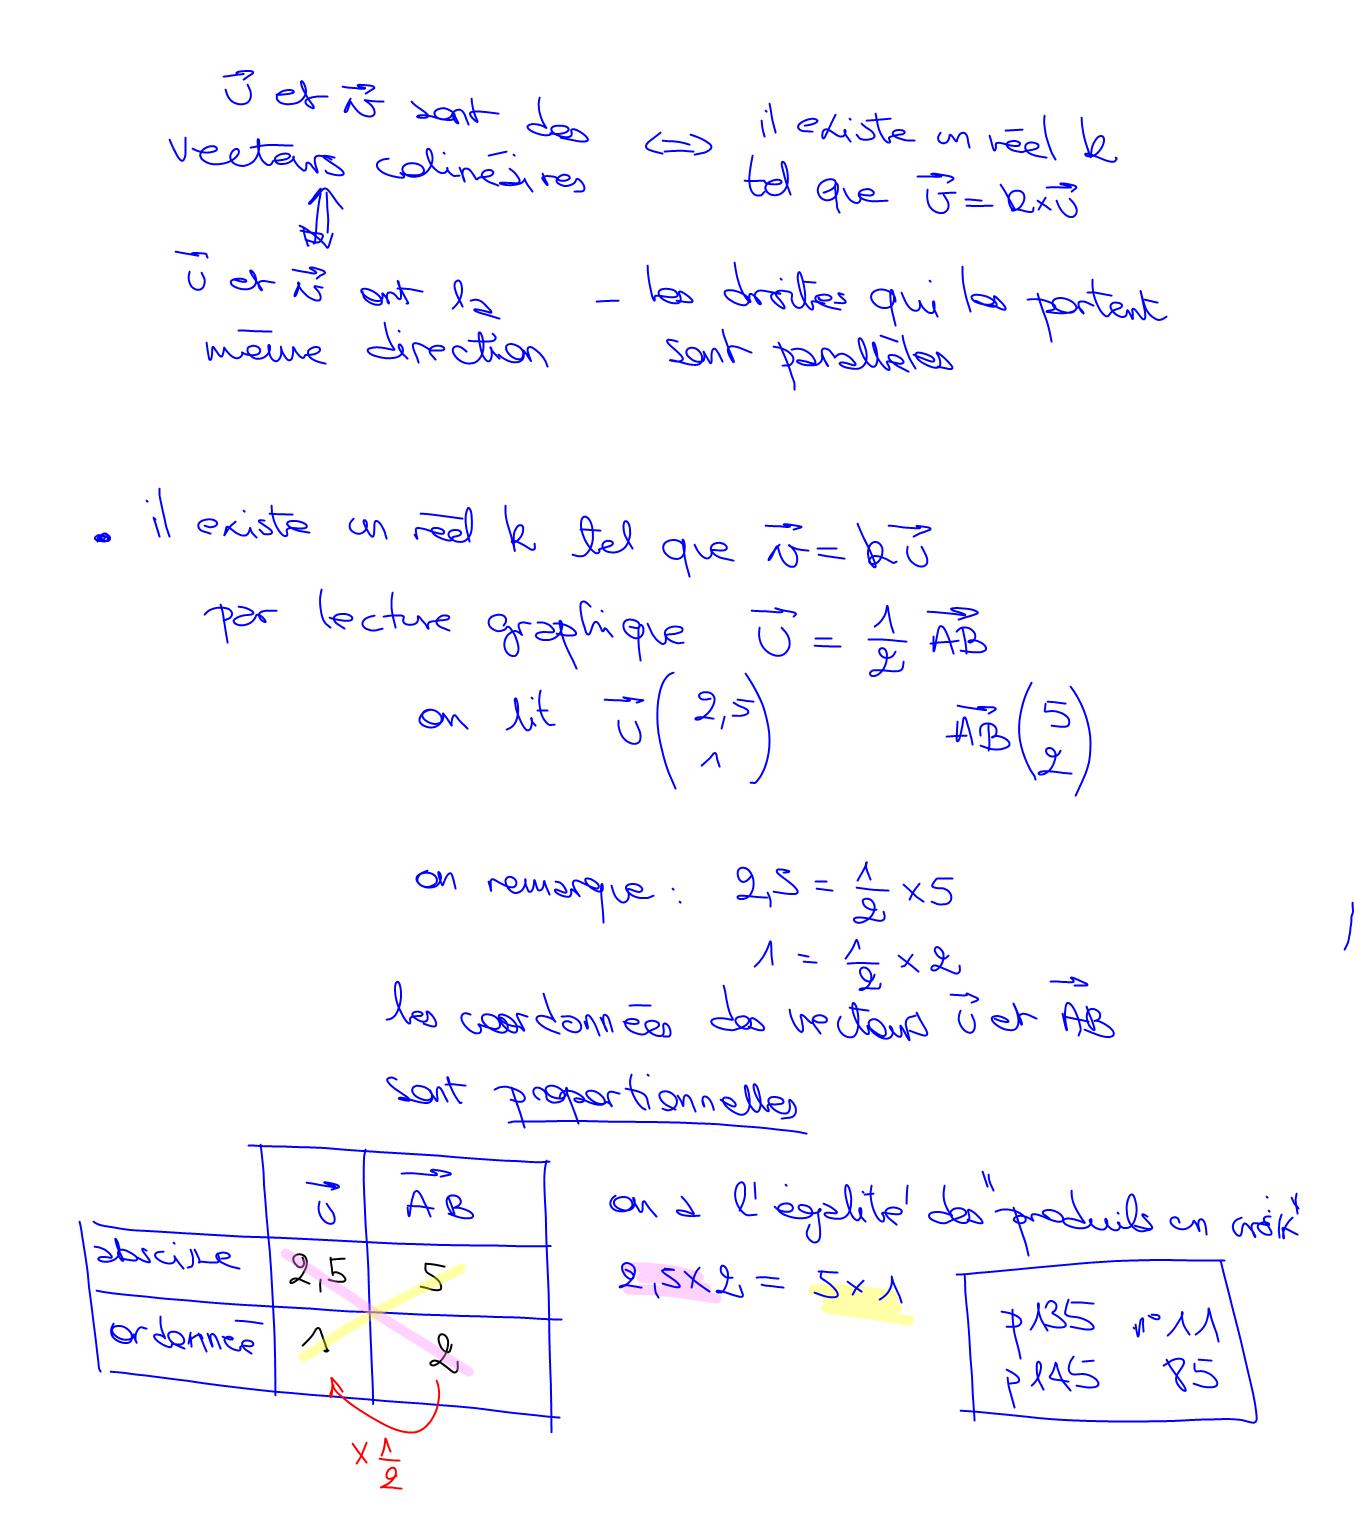 u⃗ et v⃗ sont des ⇔ il existe un réel k
vecteurs colinéaires tel que v⃗ = k×u⃗
⇕
u⃗ et v⃗ ont la – les droites qui les portent
même direction sont parallèles
• il existe un réel k tel que v⃗ = k u⃗
par lecture graphique u⃗ = 1/2 AB⃗
on lit u⃗ (2,5 ; 1) AB⃗ (5 ; 2)
on remarque : 2,5 = 1/2 × 5
1 = 1/2 × 2
les coordonnées des vecteurs u⃗ et AB⃗
sont proportionnelles
u⃗ AB⃗
abscisse 2,5 5
ordonnée 1 2
× 1/2
on a l'égalité des "produits en croix"
2,5×2 = 5×1
p135 n°11
p145 85